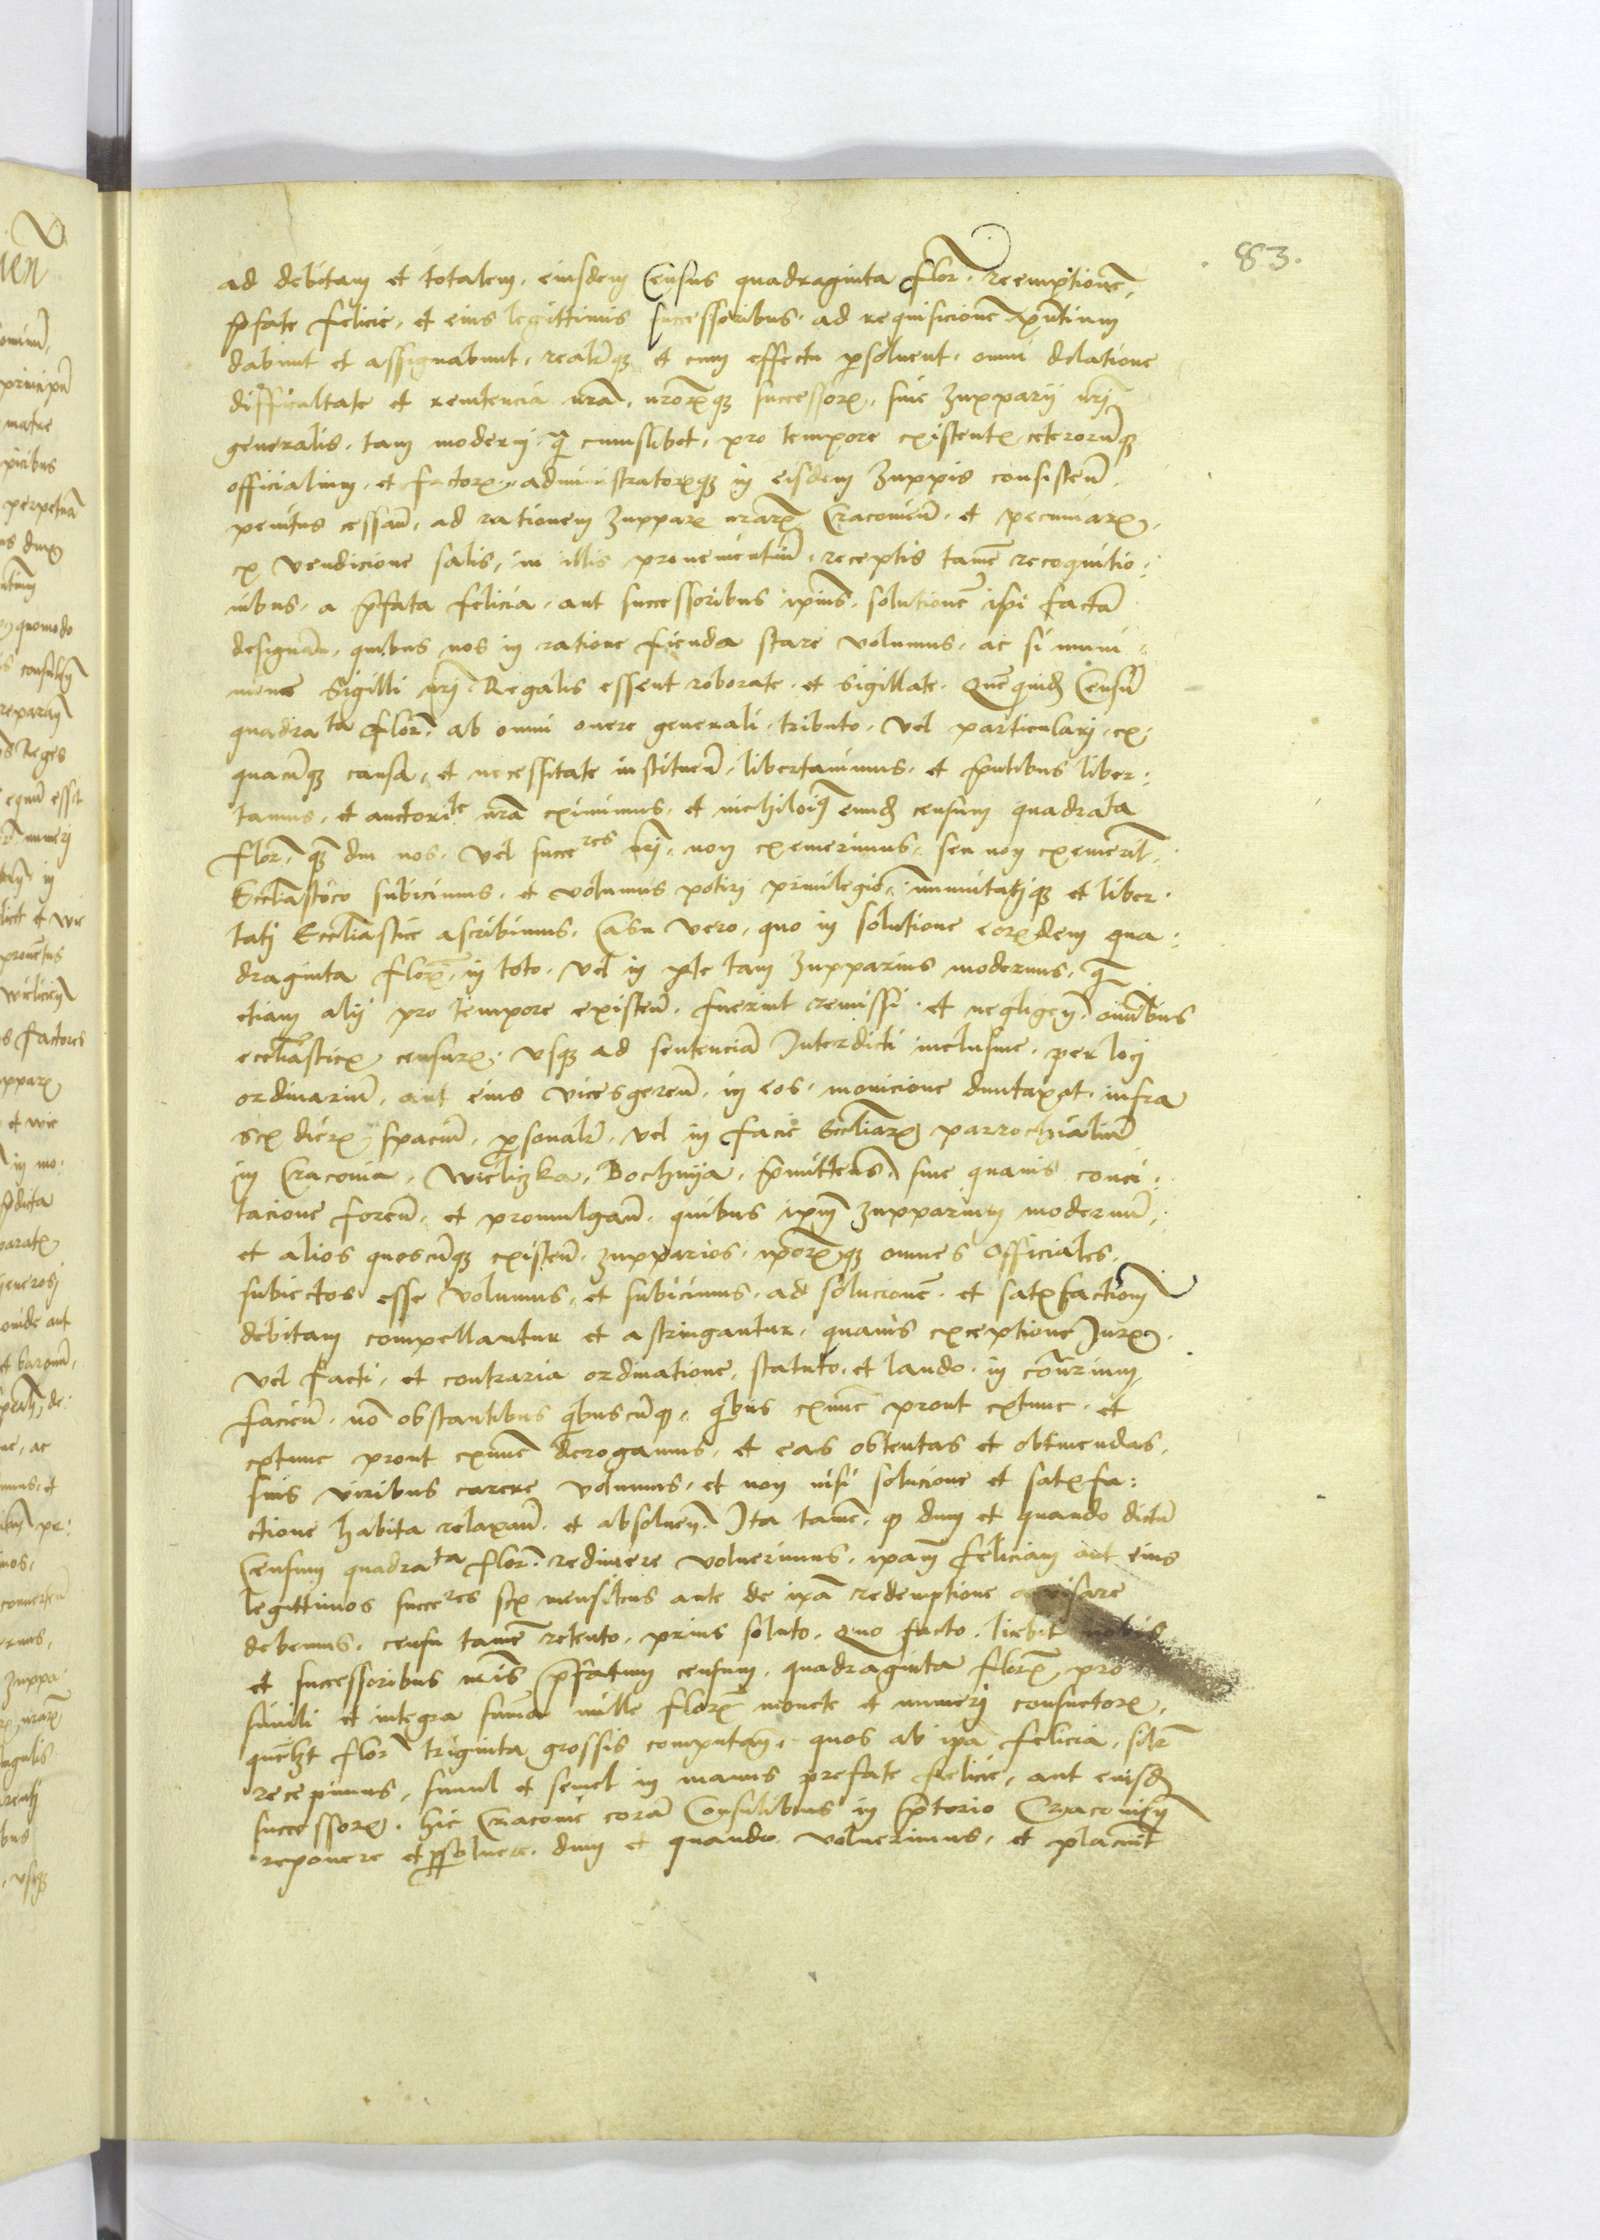 83.
ad debitam et totalem. eiusdem Census quadraginta flor. reemptionē,
p̄fate felicie, et eius legittimis successoribus. ad requisicionē p̄ntium
dabunt et assignabunt, realrꝗ et cum effectu ꝑsoluent. omni dilatione
difficultate et renitencia nr̄a. nr̄orꝗ successorꝝ, siue zupparij nr̄j
generalis, tam modernj. q̄ cuiuslibet, pro tempore existentꝭ, ceterorūꝗ
officialium, et factorꝝ, administratorꝗ in eisdem zuppis consisteñ.
penitus cessañ, ad rationem zupparꝝ nr̄arꝝ Cracovieñ, et pecuniarꝝ.
ex vendicione salis, in illis prouenientiū. receptis tamē recognitio:
nibus. a p̄fata felicia, aut successoribus ipius. solutionē ipi factā
designañ, quibus nos in ratione fienda stare volumus, ac si muni
mine Sigilli nr̄j. Regalis essent roborate. et sigillate. Quēquidꝫ Censū
quadrata flor. ab omni onere generali. tributo. vel particularj. ex
quacūꝗ causa, et necessitate instituēn, libertauimus. et p̄ntibus liber:
tamus, et auctorite nr̄a eximimus. et nichilōiꝰ eundꝫ censum quadrata
flor. ꝗꝫ diu nos. vel succeres nr̄j. non exemerimus. seu non exemerīt
Eccl̄iastico subicimus. et volumus potirj priuilegio, immunitatjꝗ et liber.
tatj Eccl̄iastice ascribimus. Casu vero, quo in solutione eorꝝdem qua:
draginta florꝝ, in toto. vel in ꝑte tam zupparius modernus. q̄
etiam alij pro tempore existeñ. fuerint remissi. et negligeñ. oīnibus
eccl̄iasticꝭ censurꝭ. vsꝗ ad sentenciā Interdicti inclusiue. per locj
ordinarium. aut eius vicesgereñ. in eos. monicione duntaxat. infra
sex dierꝝ spaciū, ꝑsonalr̄, vel in facie Eccl̄iarꝝ parrochialiū
in Cracovia, Wieliczka, Bochnya, p̄mittens, sine quauis conci:
tacione foreñ, et promulgañ. quibus ip̄m zupparium modernū,
et alios quoscūꝗ existeñ. zupparios. ip̄orꝗ omnes officiales,
subiectos esse volumus, et subicimus. ad solucionē. et satꝭfactionē
debitam compellantur et astringantur, quauis exceptione Jurꝭ.
vel facti, et contraria ordinatione, statuto. et laudo. in cōtrarium
facieñ. nō obstantibus q̇buscūꝗ. q̇bus exnūc prout extunc. et
extunc prout exnūc derogamus, et eas obtentas et obtinendas.
suis viribus carere volumus, et non nisi solucione et satꝭfa:
ctione habita relaxañ. et absolueñ. Ita tamē. ꝙ dum et quando dictū
Censum quadrata flor. redimere voluerimus, ipam feliciam aut eius
legittimos succeres sex mensibus ante de ipa redemptione auisare
debemus. censu tamē retento, prius soluto. Quo facto. licebit nobis
et successoribus nr̄is p̄fatum censum. quadraginta florꝝ, pro
simili et integra sum̄a mille florꝝ monete et numerj consuetorꝝ,
quēlꝫt flor. triginta grossis computañ. quos ab ipa felicia, silr̄
recepimus, simul et semel in manus prefate felicie, aut eiusdꝫ
successorꝝ. hic Cracovie corā Consulibus in p̄torio Cracouieñ
reponere et ꝑsoluere. dum et quando voluerimus. et placuerit